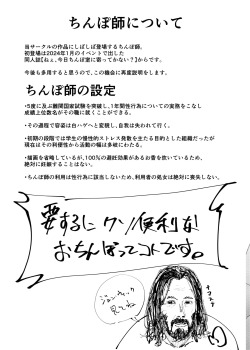 ちんぽ師について
当サークルの作品にしばしば登場するちんぽ師。
初登場は2024年1月のイベントで出した
同人誌【ねぇ、今日ちんぽ室に寄ってかない?】からです。
今後も多用すると思うので、この機会に再度説明をします。
ちんぽ師の設定
・5度に及ぶ難関国家試験を突破し、1年間性行為についての実務をこなし
成績上位数名がその職に就くことができる。
・その過程で容姿は白ハゲへと変貌し、自我は失われて行く。
・初期の段階では学生の慢性的ストレス発散を主たる目的とした組織だったが
現在はその利便性から活動の幅は多岐にわたる。
・描画を省略しているが、100%の避妊効果があるお香を炊いているため、
絶対に妊娠することはない。
・ちんぽ師の利用は性行為に該当しないため、利用者の処女は絶対に喪失しない。
要するにクソ便利な
おちんぽってコトです。
ジョンウィック
見てね